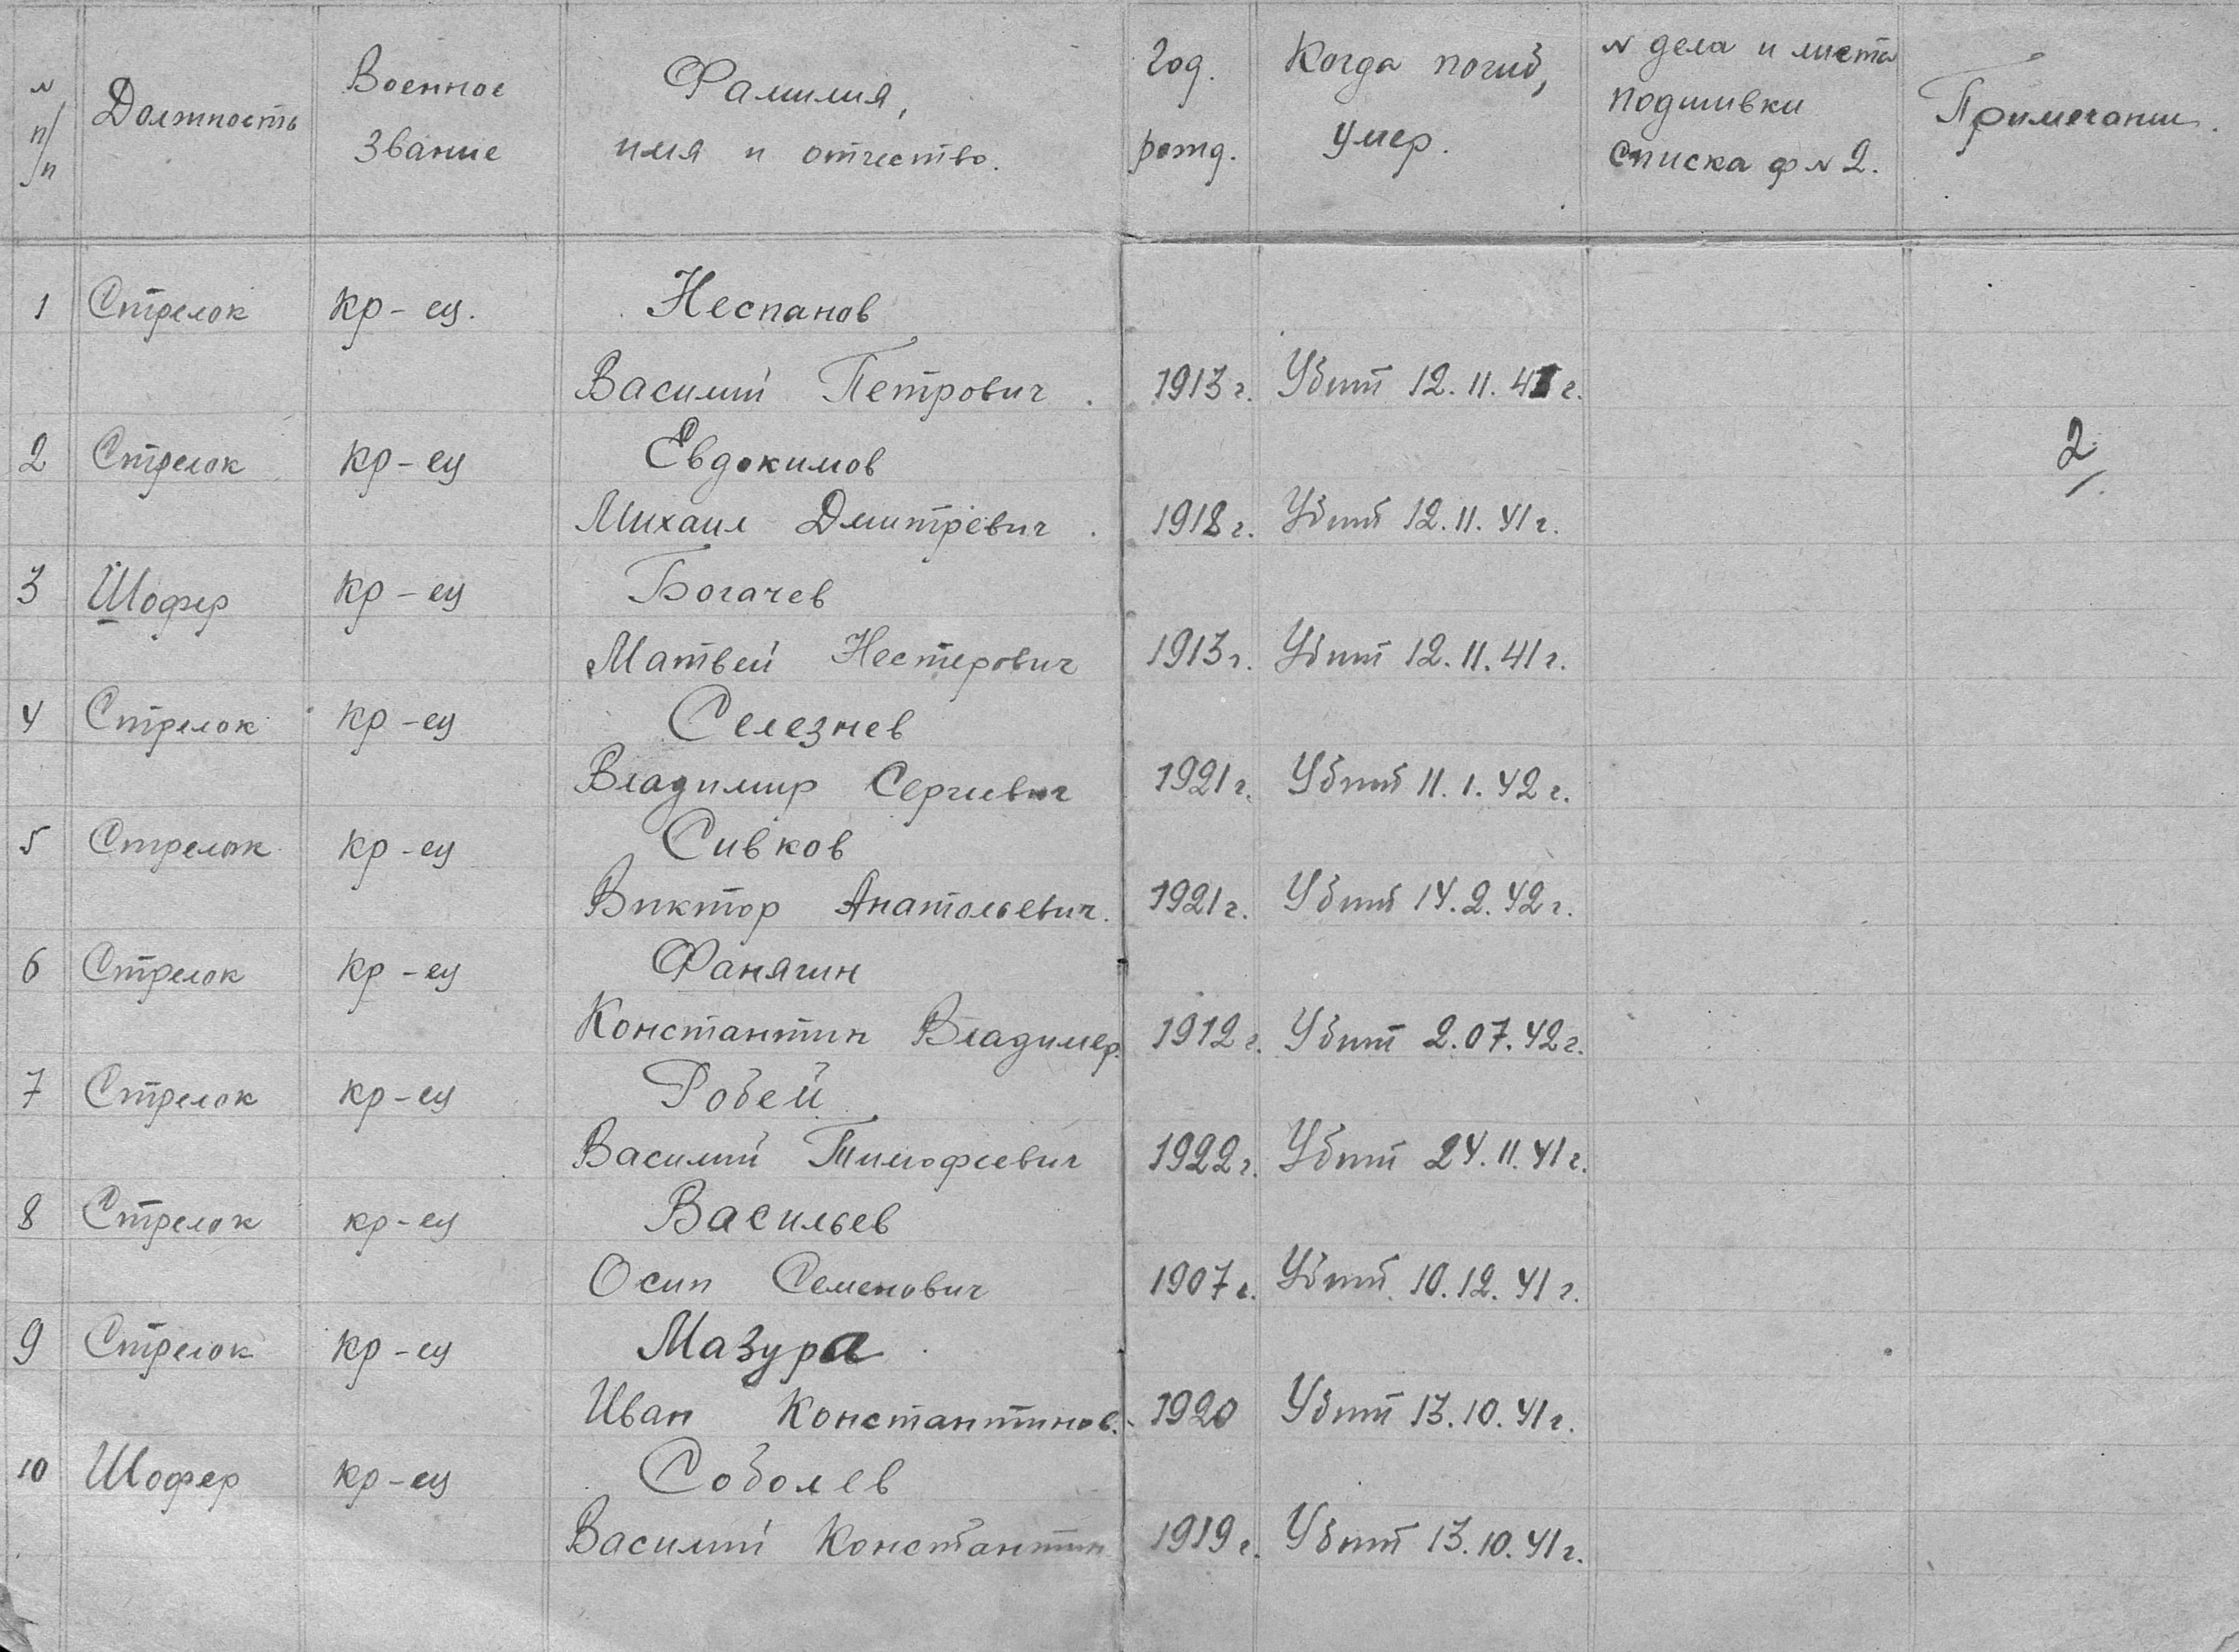 № п/п Должность Военное звание Фамилия, имя и отчество. Год. рожд. Когда погиб, умер. № дела и листа подшивки списка ф № 2. Примечание.
1 Стрелок кр-ец. Неспанов
Василий Петрович. 1913 г. Убит 12.11.41 г.
2 Стрелок кр-ец Евдокимов
2
Михаил Дмитревич. 1918 г. Убит 12.11.41 г.
3 Шофер кр-ец Богачев
Матвей Нестерович 1913 г. Убит 12.11.41 г.
4 Стрелок кр-ец Селезнев
Владимир Сергиевич 1921 г. Убит 11.1.42 г.
5 Стрелок кр-ец Сивков
Виктор Анатольевич. 1921 г. Убит 14.2.42 г.
6 Стрелок кр-ец Фанягин
Константин Владимер. 1912 г. Убит 2.07.42 г.
7 Стрелок кр-ец Робей
Василий Тимофеевич 1922 г. Убит 24.11.41 г.
8 Стрелок кр-ец Васильев
Осип Семенович 1907 г. Убит 10.12.41 г.
9 Стрелок кр-ец Мазура
Иван Константинов. 1920 Убит 13.10.41 г.
10 Шофер кр-ец Соболев
Василий Константин 1919 г. Убит 13.10.41 г.